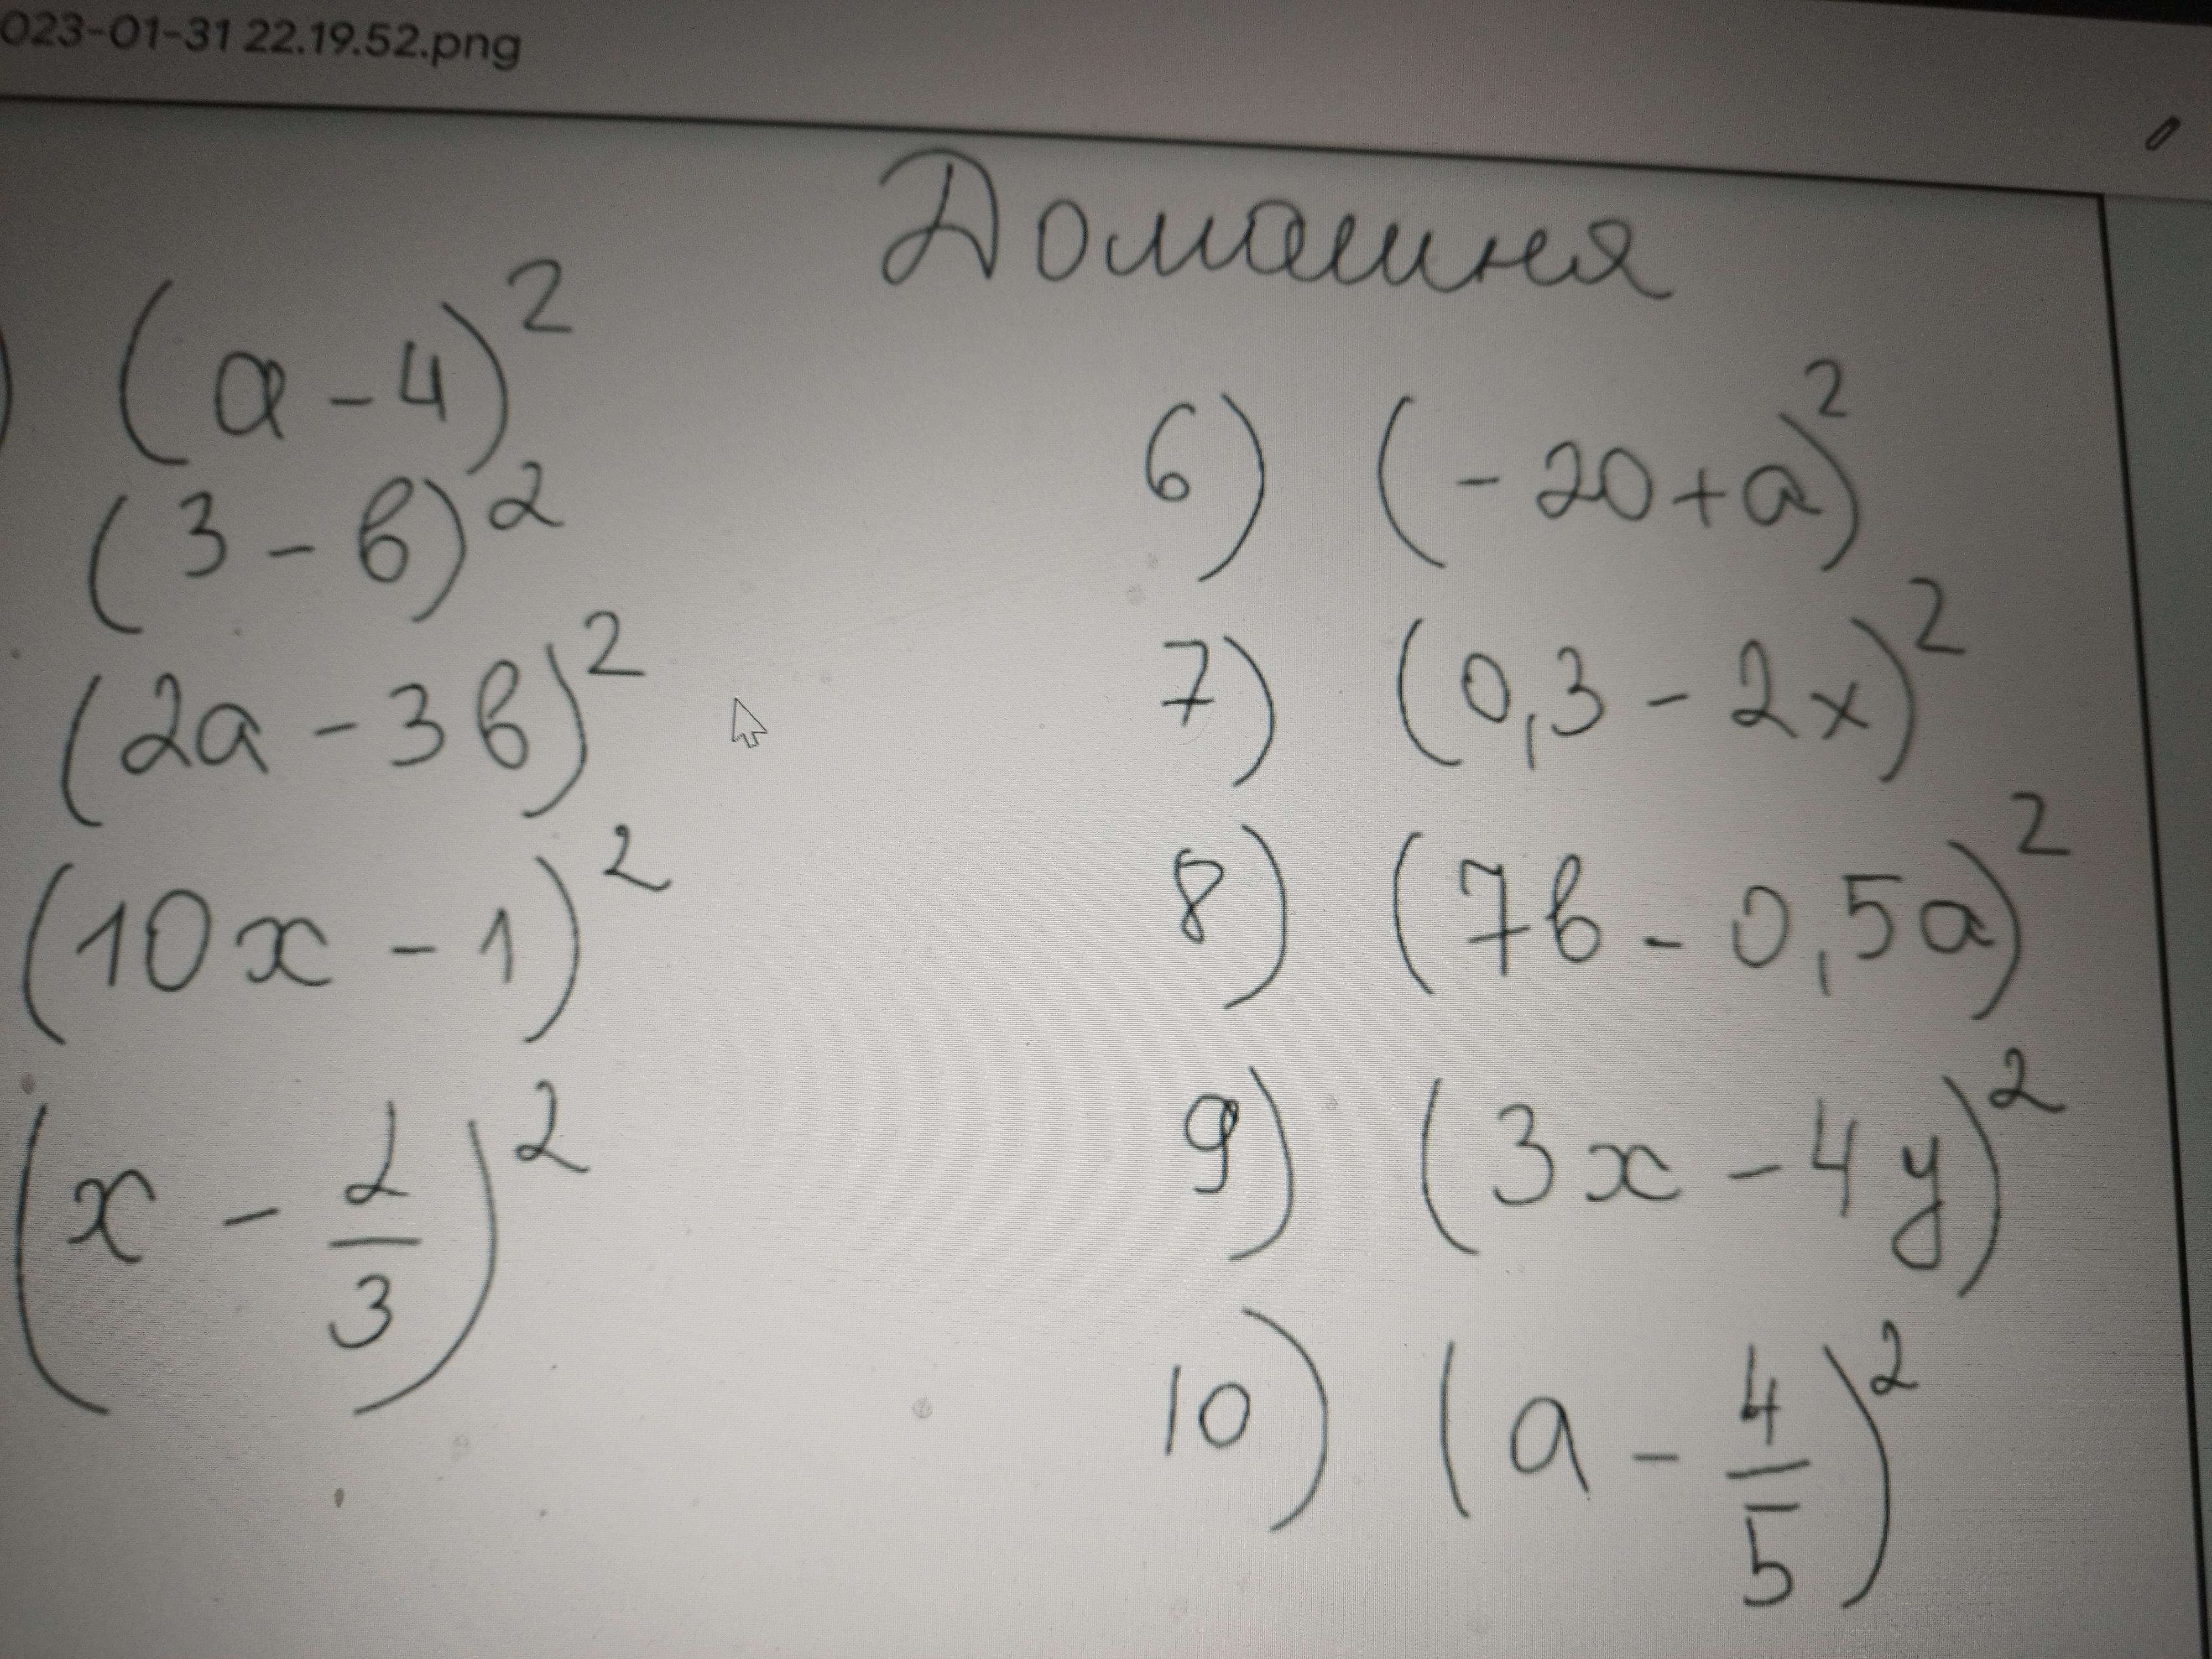 023-01-31 22.19.52.png
Домашня
) (a - 4)²
(3 - в)²
(2a - 3в)²
(10x - 1)²
(x - 2/3)²
6) (- 20 + a)²
7) (0,3 - 2x)²
8) (7в - 0,5a)²
9) (3x - 4y)²
10) (a - 4/5)²